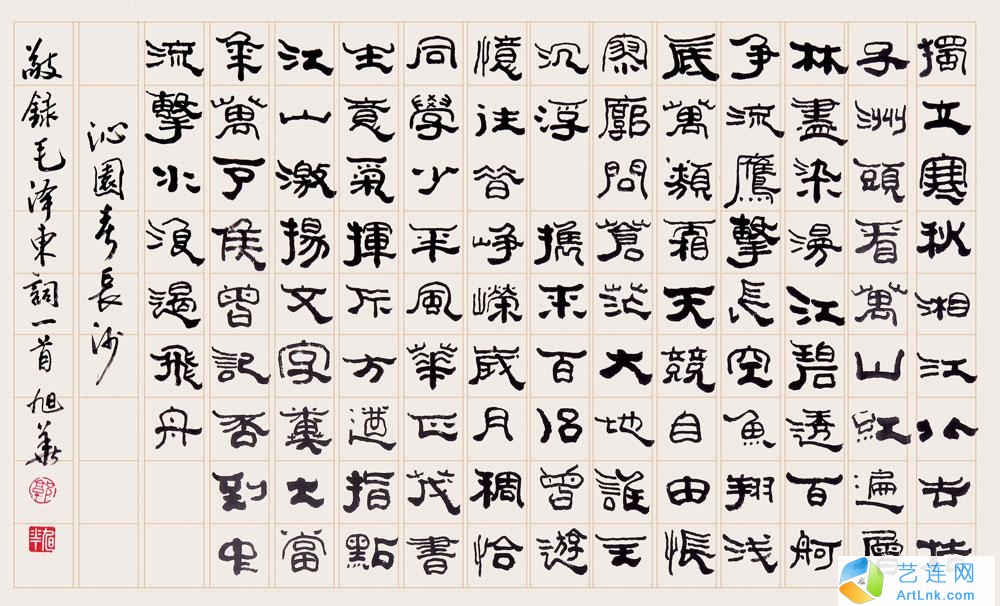 獨立寒秋湘江北去
子洲頭看萬山紅遍層
林盡染漫江碧透百舸
争流鷹擊長空魚翔浅
底萬類霜天競自由悵
寥廓問蒼茫大地誰主
沉浮 攜來百侶曾遊
憶往昔崢嶸歲月稠恰
同學少年風華正茂書
生意氣揮斥方遒指點
江山激揚文字糞土當
年萬戶侯曾記否到中
流擊水浪遏飛舟
沁園春長沙
敬錄毛澤東詞一首 旭華
艺连网
ArtLnk.com